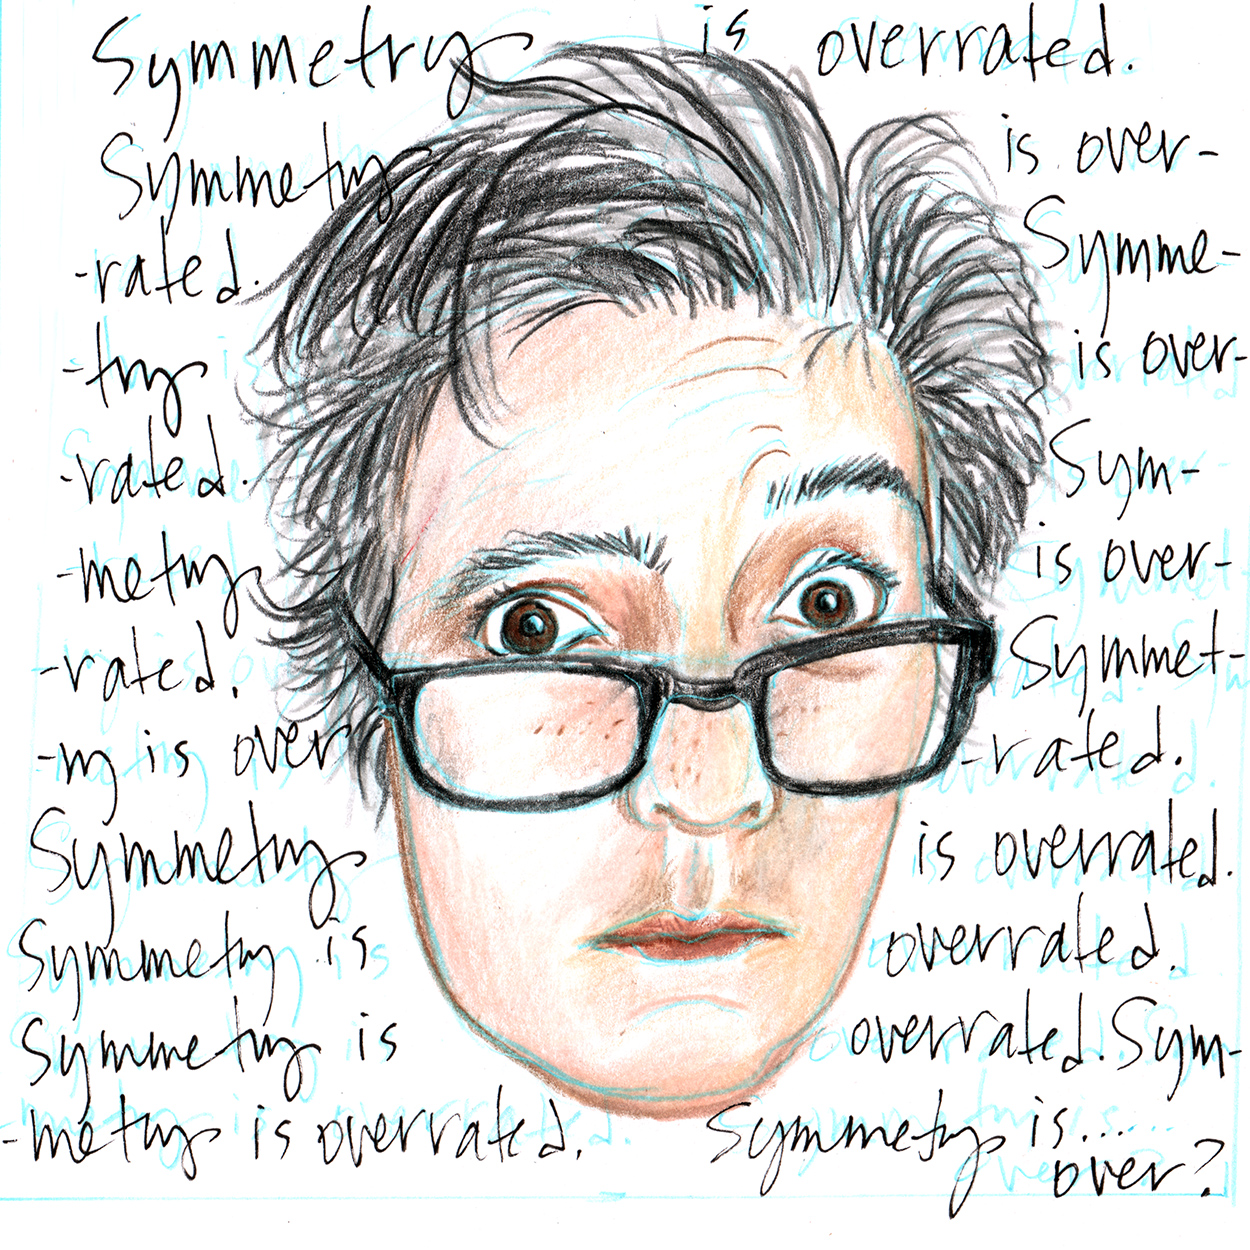 Symmetry is overrated.
Symmetry is over-
-rated. Symme-
-try is over-
-rated. Sym-
-metry is over-
-rated. Symmet-
-ry is over -rated.
Symmetry is overrated.
Symmetry is overrated.
Symmetry is overrated. Sym-
-metry is overrated. Symmetry is.....
over?